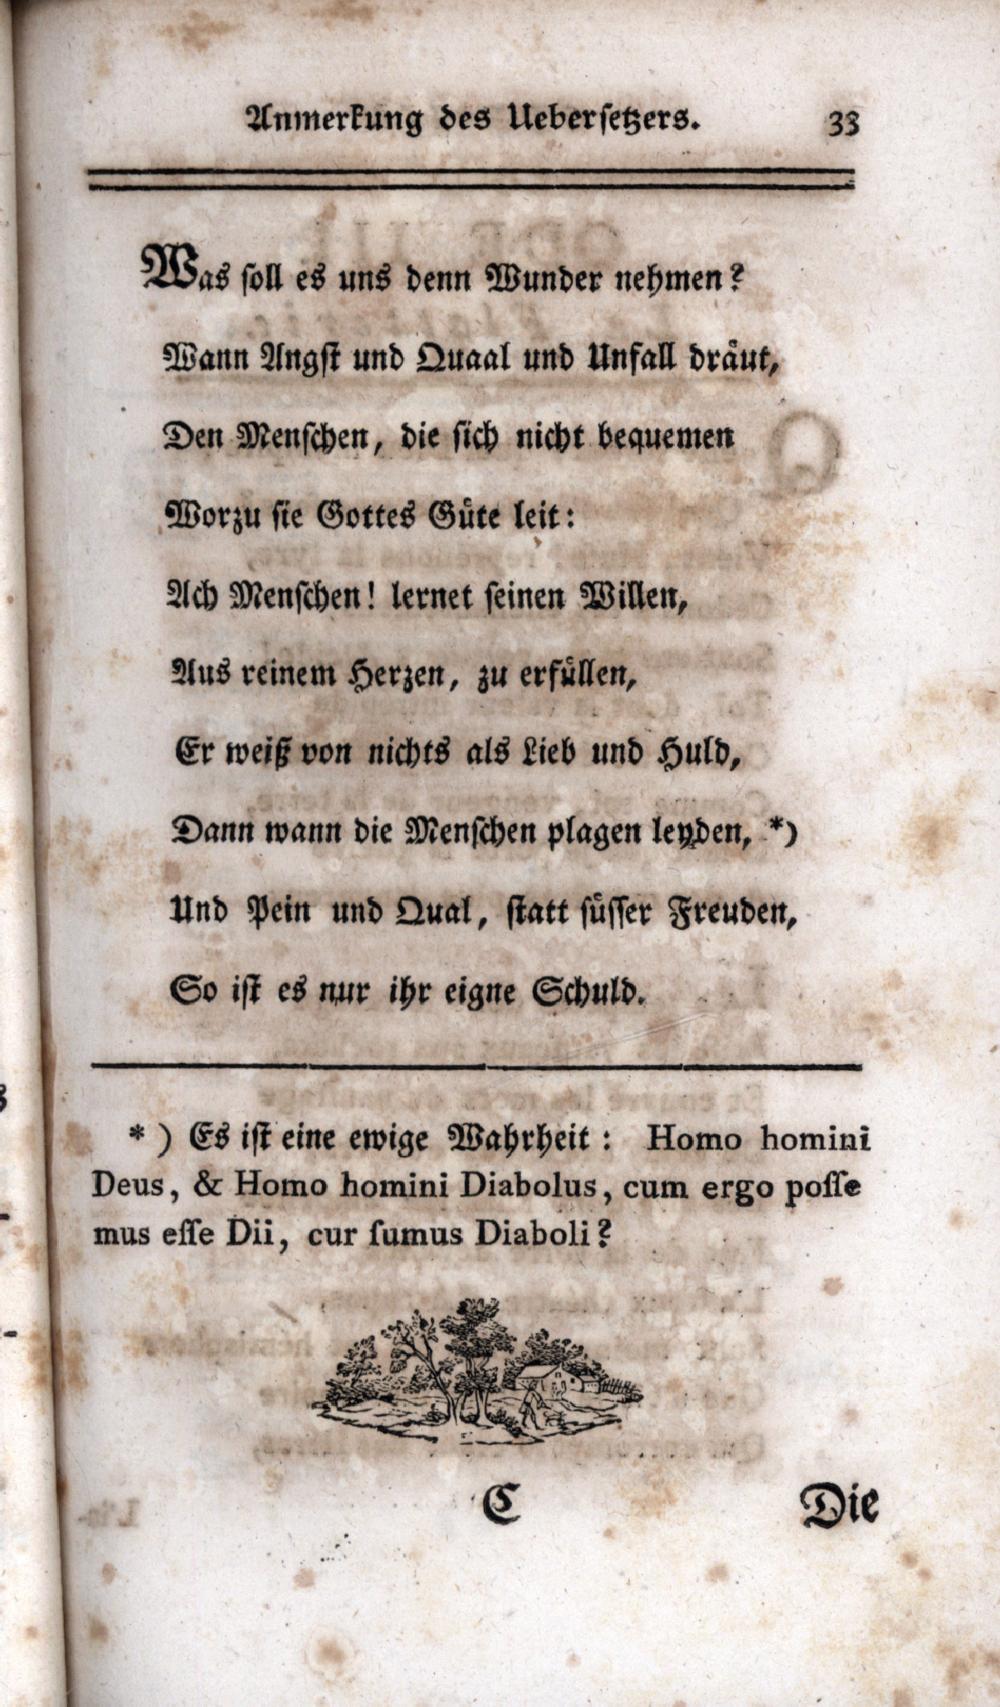 Anmerkung des Uebersetzers. 33
Was soll es uns denn Wunder nehmen?
Wann Angst und Quaal und Unfall dräut,
Den Menschen, die sich nicht bequemen
Worzu sie Gottes Güte leit:
Ach Menschen! lernet seinen Willen,
Aus reinem Herzen, zu erfüllen,
Er weiß von nichts als Lieb und Huld,
Dann wann die Menschen plagen leyden, *)
Und Pein und Qual, statt süsser Freuden,
So ist es nur ihr eigne Schuld.
*) Es ist eine ewige Wahrheit: Homo homini
Deus, & Homo homini Diabolus, cum ergo posse
mus esse Dii, cur sumus Diaboli?
C Die